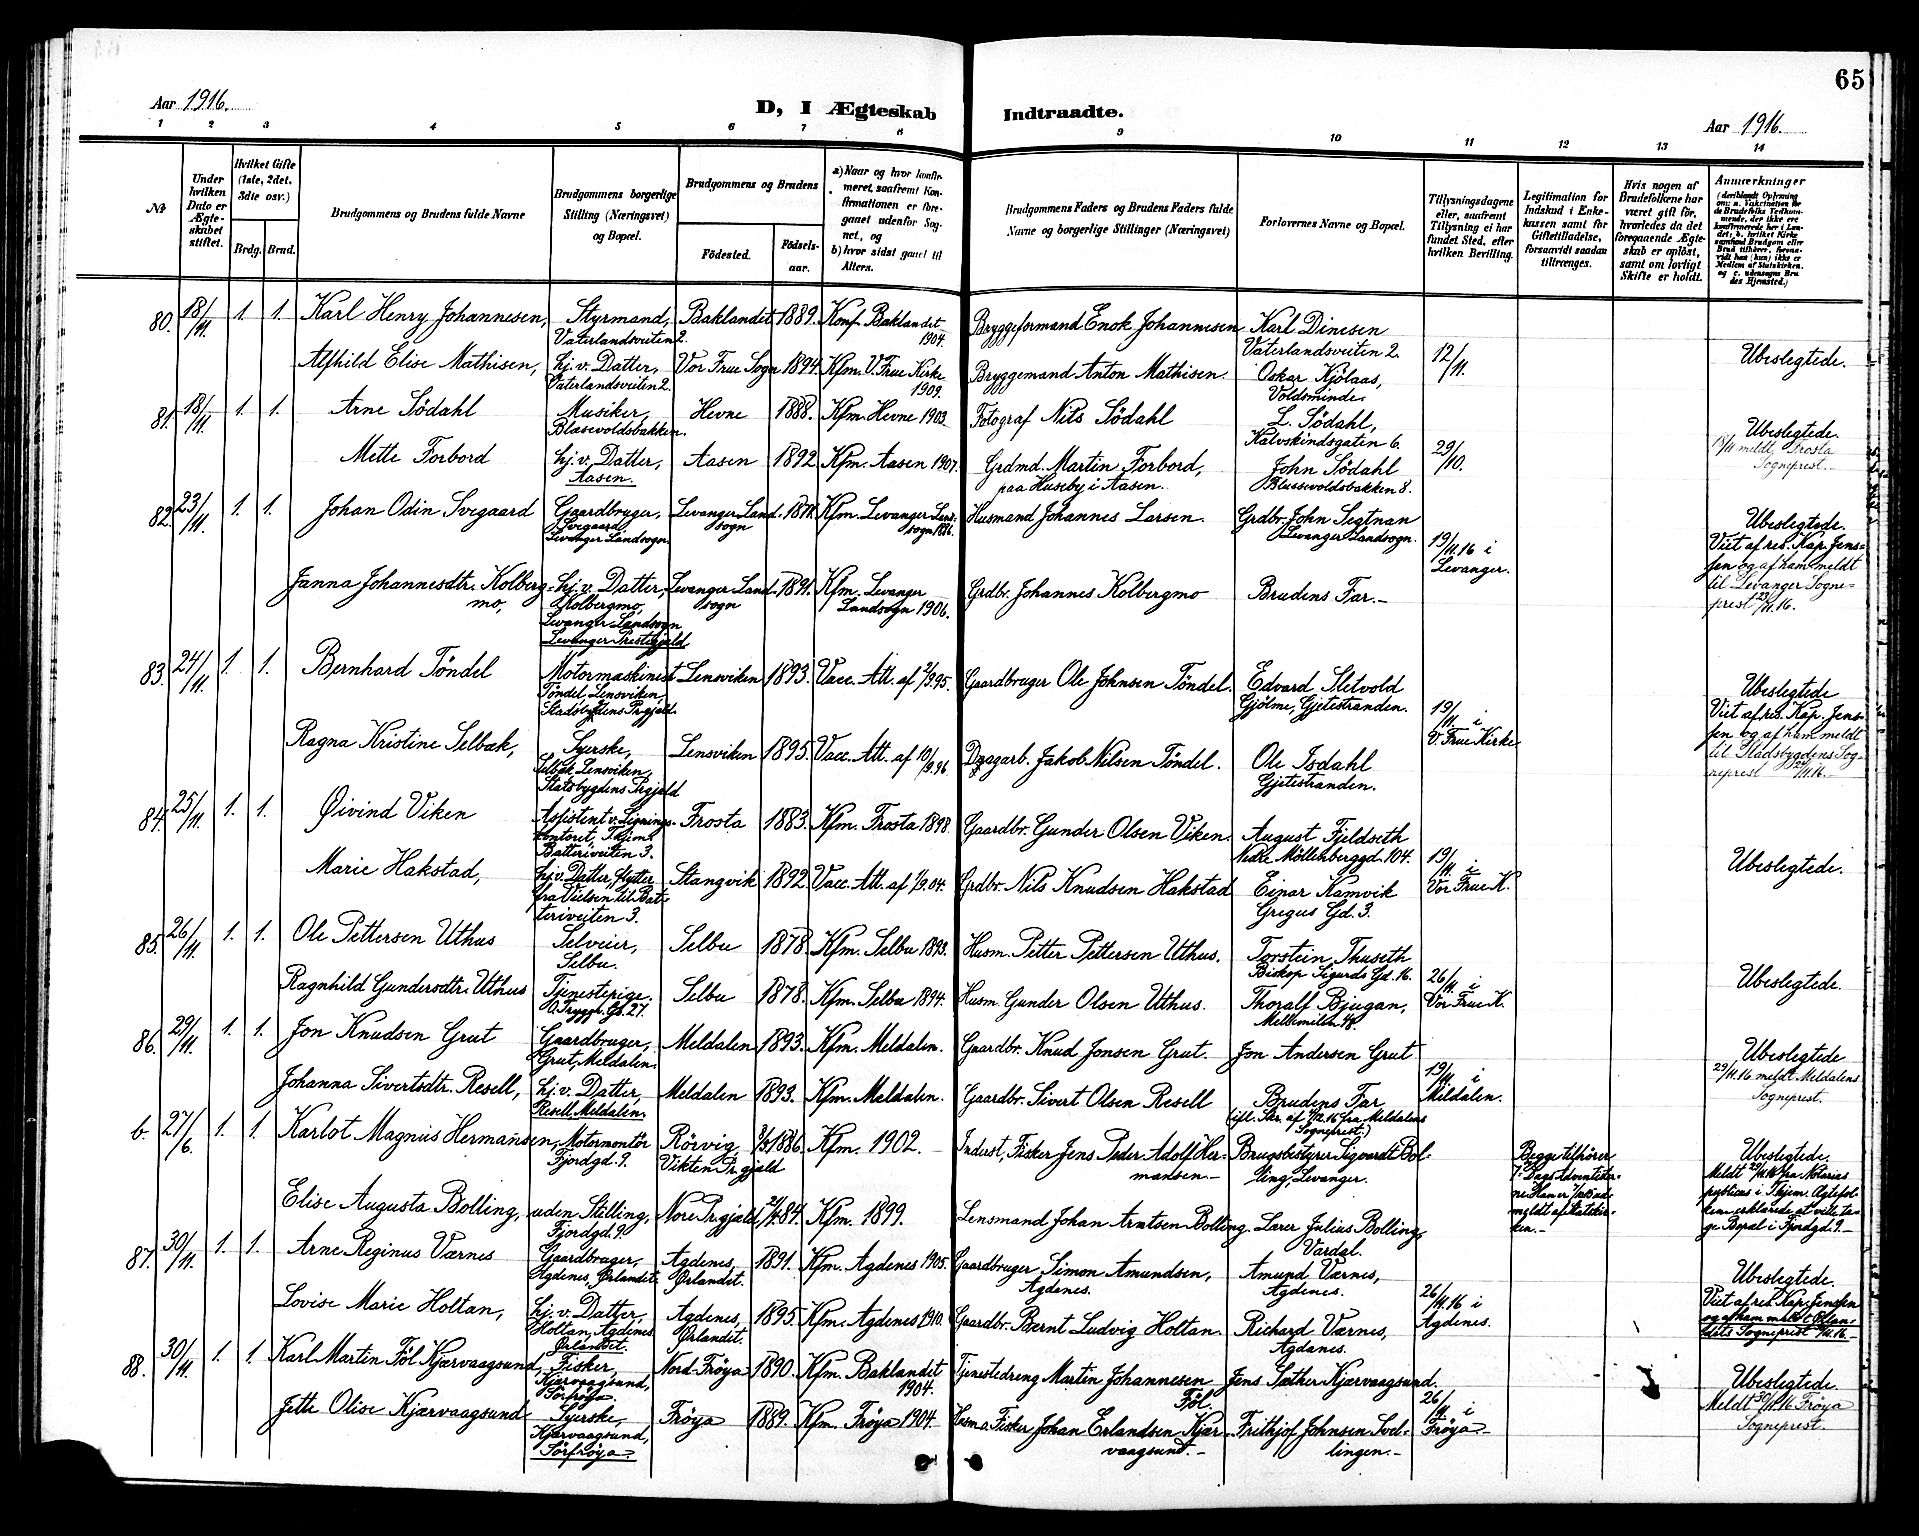 65
Aar 1916.
D, I Ægteskab Indtraadte.
Aar 1916.
1 2 3 4 5 6 7 8 9 10 11 12 13 14
№
Under hvilken Dato er Ægteskabet stiftet.
Hvilket Gifte (1ste, 2det, 3die osv.)
Brdg. Brud.
Brudgommens og Brudens fulde Navne
Brudgommens borgerlige Stilling (Næringsvei) og Bopæl.
Brudgommens og Brudens
Födested. Födsels-aar.
a) Naar og hvor konfirmeret, saafremt Konfirmationen er foregaaet udenfor Sognet, og
b) hvor sidst gaaet til Alters.
Brudgommens Faders og Brudens Faders fulde Navne og borgerlige Stillinger (Næringsvei)
Forlovernes Navne og Bopæl.
Tillysningsdagene eller, saafremt Tillysning ei har fundet Sted, efter hvilken Bevilling.
Legitimation for Indskud i Enkekassen samt for Giftetilladelse, forsaavidt saadan tiltrænges.
Hvis nogen af Brudefolkene har været gift för, hvorledes da det foregaaende Ægteskab er oplöst, samt om lovligt Skifte er holdt.
Anmærkninger
80. 18/11. 1. 1. Karl Henry Johannesen, Styrmand, Vaterlandsveiten 2. Baklandet 1889. Konf. Baklandet 1904. Bryggeformand Enok Johannesen Karl Dinesen Vaterlandsveiten 2. 12/11. Ubeslegtede.
Alfhild Elise Mathisen, hj. v. Datter, Vaterlandsveiten 2. Vor Frue Sogn 1894. Kfm. V. Frue Kirke 1909. Bryggemand Anton Mathisen. Oskar Kjölaas, Voldsminde.
81. 18/11. 1. 1. Arne Södahl Musiker, Blæsevoldsbakken. Hevne 1888. Kfm. Hevne 1903 Fotograf Nils Södahl L. Södahl, Kalvskindsgaten 6. 29/10. Ubeslegtede. 18/11 meldt Frosta Sogneprest.
Mette Forbord hj. v. Datter, Aasen. Aasen 1892 Kfm. Aasen 1907. Grdmd. Martin Forbord, paa Huseby i Aasen. John Södahl Blussevoldsbakken 8.
82. 23/11. 1. 1. Johan Odin Svegaard Gaardbruger, Svegaard Levanger Landsogn. Levanger Landsogn 1871. Kfm. Levanger Landsogn 1886. Husmand Johannes Larsen. Grdbr. John Segtnan Levanger Landsogn. 19/11.16 i Levanger. Ubeslegtede. Viet af res. Kap. Jenssen og af ham meldt til Levanger Sogneprest 23/11.16.
Janna Johannesdtr. Kolbergmo, hj. v. Datter, Kolbergmo, Levanger Landsogn Levanger Prestegjeld Levanger Landsogn 1891. Kfm. Levanger Landsogn 1906. Grdbr. Johannes Kolbergmo Brudens Far.
83. 24/11. 1. 1. Bernhard Töndel Motormaskinist Töndel, Lensviken, Stadsbygdens Prgjald. Lensviken 1893. Vacc. Att. af 2/9.95. Gaardbruger Ole Johnsen Töndel. Edvard Sletvold Gjölme, Gjetestranden. 19/11. i V. Frue Kirke Ubeslegtede Viet af res. Kap. Jenssen og af ham meldt til Stadsbygdens Sogneprest
Ragna Kristine Selbæk, Syerske, Selbæk Lensviken, Statsbygdens Prgjald Lensviken 1895. Vacc. Att. af 10/9.96. Dagarb. Jakob Nilsen Töndel. Ole Isdahl Gjetestranden.
84. 25/11. 1. 1. Øivind Viken Assistent v. Ligningskontoret, Thjem Batteriveiten 3. Frosta 1883. Kfm. Frosta 1898. Gaardbr. Gunder Olsen Viken. August Fjeldseth Nedre Möllenberggd. 104. 19/11. i Vor Frue K. Ubeslegtede.
Marie Hakstad, hj. v. Datter, flytter fra Vielsen til Batteriveiten 3. Stangvik 1892. Vacc. Att. af 1/9.04. Grdbr. Nils Knudsen Hakstad Einar Ramvik Gregus Gd. 3.
85. 26/11. 1. 1. Ole Pettersen Uthus Selveier, Selbu. Selbu 1878. Kfm. Selbu 1893. Husm. Petter Pettersen Uthus. Torstein Thuseth Biskop Sigurds Gd. 16. 26/11. i Vor Frue K. Ubeslegtede.
Ragnhild Gundersdtr. Uthus Tjenestepige. O. Tryggv. Gd. 27. Selbu 1878. Kfm. Selbu 1894. Husm. Gunder Olsen Uthus. Thoralf Bjugan, Mellemilen 48.
86. 29/11. 1. 1. Jon Knudsen Grut Gaardbruger, Grut, Meldalen. Meldalen 1893. Kfm. Meldalen. Gaardbr. Knud Jonsen Grut. Jon Andersen Grut 19/11. i Meldalen. Ubeslegtede 29/11.16 meldt Meldalens Sogneprest.
Johanna Sivertsdtr. Resell, hj. v. Datter, Resell, Meldalen. Meldalen 1893. Kfm. Meldalen. Gaardbr. Sivert Olsen Resell Brudens Far (ifl. Skr. af fra Meldalens Sogneprest.)
b. 27/6. 1. 1. Karlot Magnus Hermansen, Motormontör Fjordgd. 9. Rörvig, Vikten Prgjald 1886. Kfm. 1902. Indust, Fisker Jens Peder Adolf Hermansen. Brugsbestyrer Sigvardt Bolling, Levanger. Begge tilhører 7. Dags Adventisterne udmeldt af Statskirken. Ubeslegtede. Meldt 29/11.16 fra Notarius publicus i Thjem. Ægtefolkene erklærede at ville tage Bopæl i Fjordgd. 9.
Elise Augusta Bolling, uden Stilling, Fjordgd. 9. Nore Prgjald 84. Kfm. 1899. Lensmand Johan Arntsen Bolling. Lærer Julius Bolling, Vardal.
87. 30/11. 1. 1. Arne Reginus Værnes Gaardbruger, Agdenes, Ørlandet. Agdenes, Ørlandet. 1891. Kfm. Agdenes 1905. Gaardbruger Simon Amundsen, Agdenes. Amund Værnes, Agdenes. 26/11.16 i Agdenes. Ubeslegtede. Viet af res. Kap. Jenssen og af ham meldt Ørlandets Sogneprest
Lovise Marie Holtan, hj. v. Datter, Holtan, Agdenes Ørlandet. Agdenes, Ørlandet. 1895. Kfm. Agdenes 1910. Gaardbr. Bernt Ludvig Holtan. Richard Værnes, Agdenes.
88. 30/11. 1. 1. Karl Martin Föl Kjærvaagsund, Fisker, Kjærvaagsund, Sörfröya. Nord-Fröya 1890. Kfm. Baklandet 1904. Tjenestedreng Martin Johannesen Föl. Jens Sæther Kjærvaagsund. 26/11. i Fröya Ubeslegtede. Meldt 30/11.16 Fröya Sogneprest.
Jette Olise Kjærvaagsund Syerske, Kjærvaagsund, Sörfröya. Fröya 1889. Kfm. Fröya 1904. Husm. o. Fisker Johan Erlandsen Kjærvaagsund. Frithjof Johnsen Svellingen.